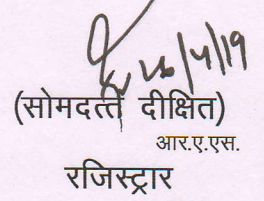 26/4/19
(सोमदत्त दीक्षित)
आर.ए.एस.
रजिस्ट्रार